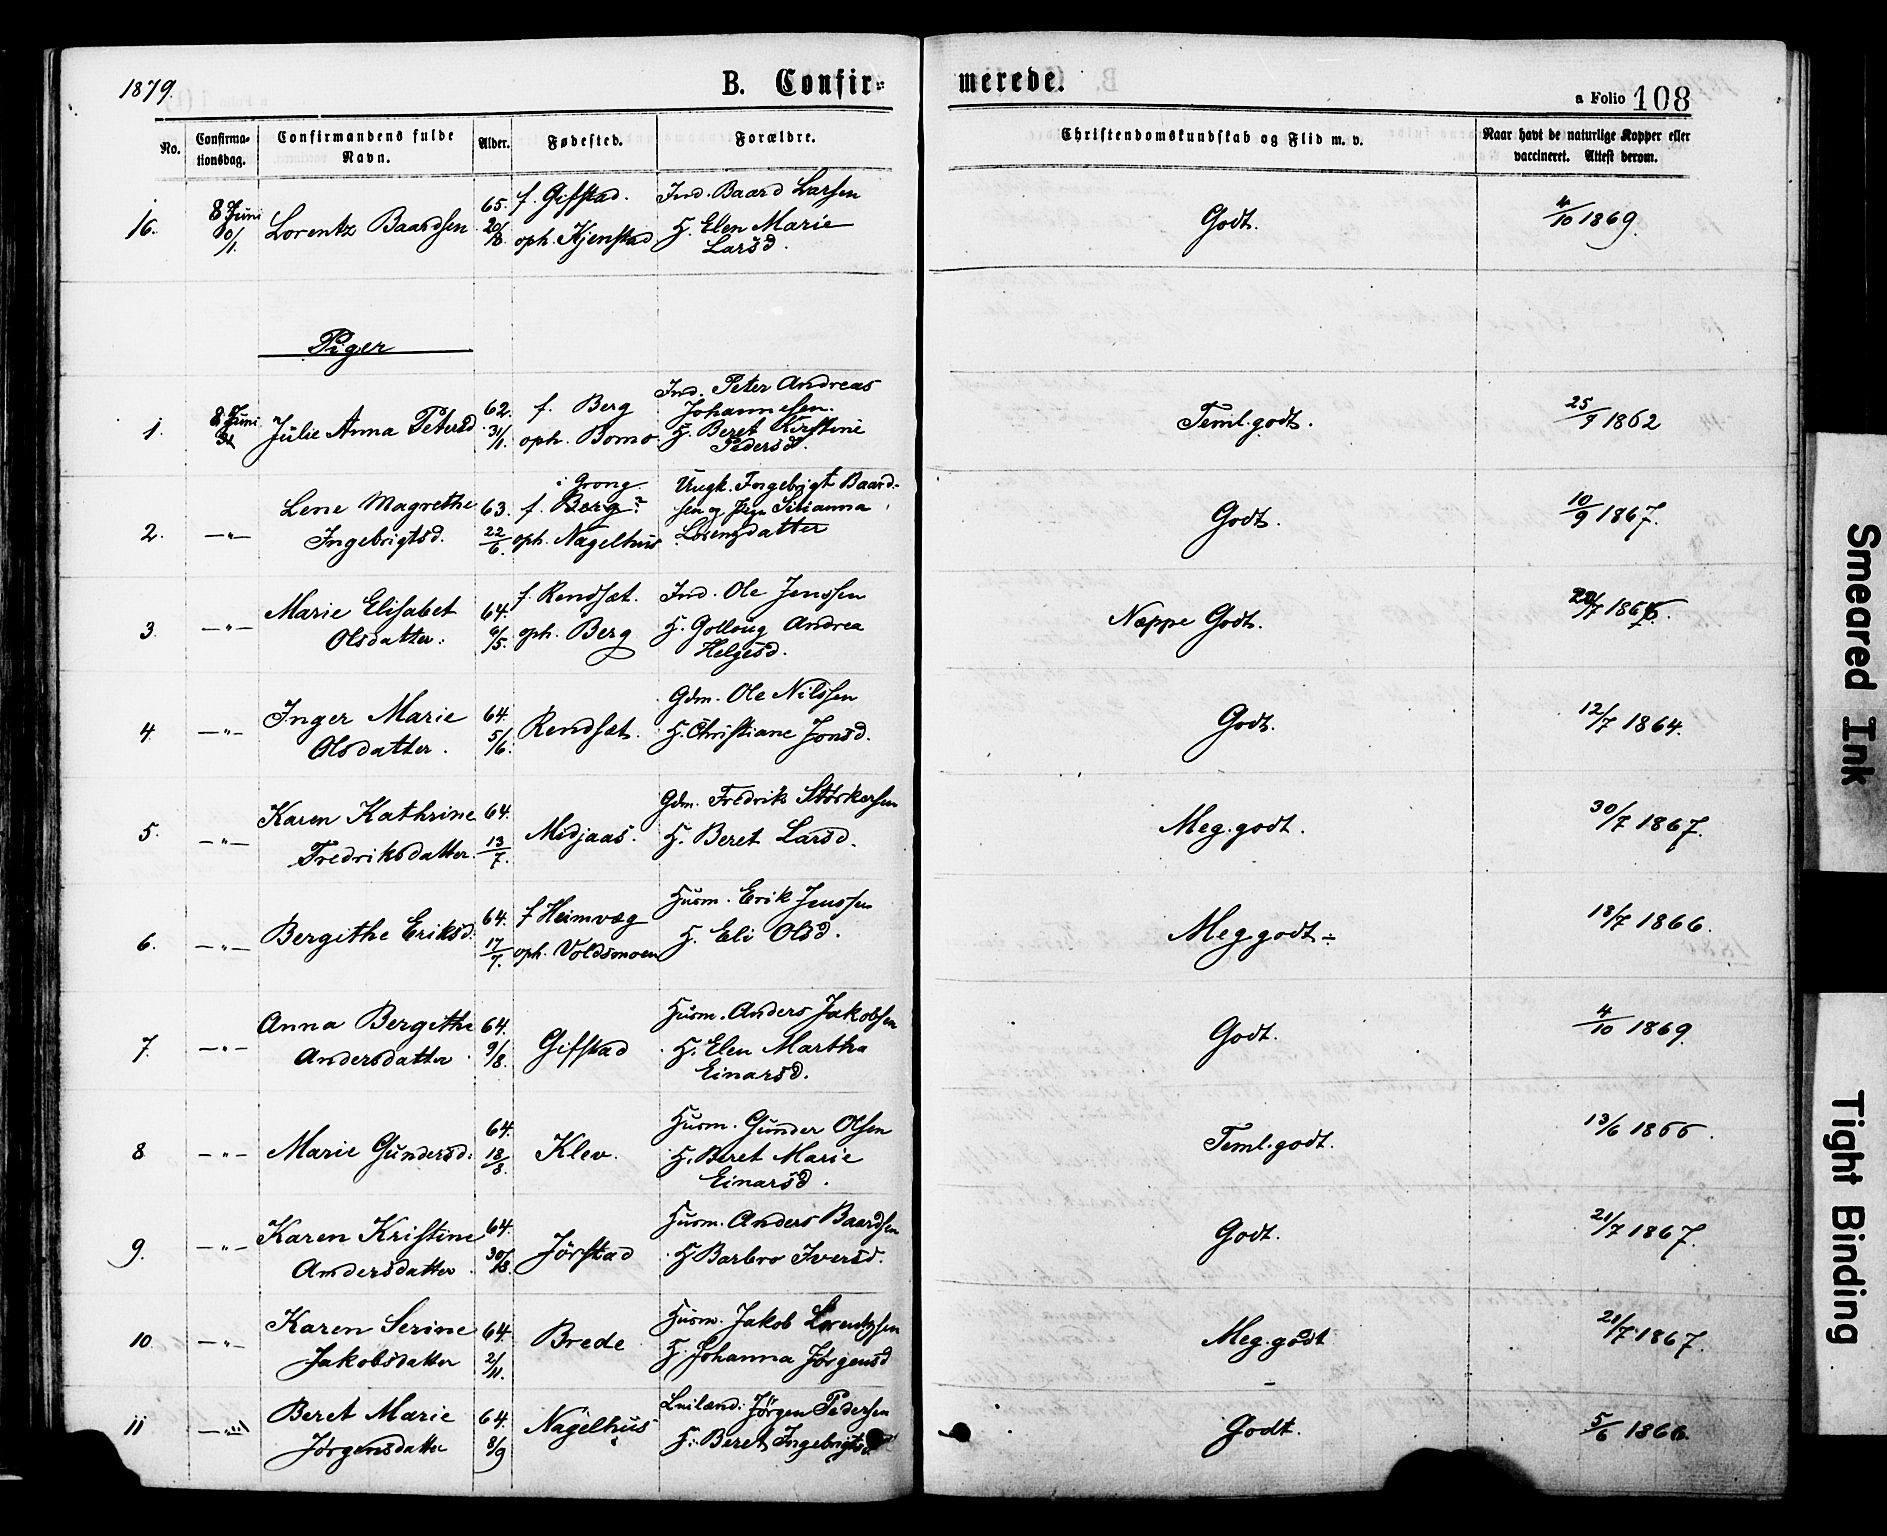 1879.
B. Confir=
merede.
a Folio 108
No.
Confirma-
tionsdag.
Confirmandens fulde
Navn.
Alder.
Fødested.
Forældre.
Christendomskundskab og Flid m. v.
Naar havt de naturlige Kopper eller
vaccineret. Attest derom.
16. 8 Juni Lorentz Baardsen 65. 20/8 f. Gifstad. oph. Kjenstad
Ind. Baard Larsen
H. Elen Marie
Larsd.
Godt. 4/10 1869.
Piger
1. 8 Juni Julie Anna Petersd. 62. 31/1. f. Berg oph. Bomo
Ind. Peter Andreas
Johannesen.
H. Beret Kirstine
Pedersd.
Teml. godt. 25/9 1862
2. —"— Lene Magrethe
Ingebrigtsd. 63. 22/6. i Grong f. Berg? oph. Nagelhus
Ungk. Ingebrigt Baard-
sen og Pige Silianna
Lorenzdatter
Godt. 10/9 1867.
3. —"— Marie Elisabet
Olsdatter. 64. 6/5. f. Rendsæt. oph. Berg
Ind. Ole Jenssen
H. Gollaug Andrea
Helgesd.
Næppe Godt.
4. —"— Inger Marie
Olsdatter. 64. 5/6. Rendsæt.
Gdm. Ole Nilssen
H. Christiane Jonsd.
Godt. 12/7 1864.
5. —"— Karen Kathrine
Fredriksdatter. 64. 13/7. Medjaas.
Gdm. Fredrik Størkersen
H. Beret Larsd.
Meg. godt. 30/7 1867.
6. —"— Bergithe Eriksd. 64. 17/7. f Heimvæg oph. Voldsmoen
Husm. Erik Jenssen
H. Eli Olsd.
Meg godt ÷ 18/7 1866.
7. —"— Anna Bergithe
Andersdatter. 64. 9/8. Gifstad
Husm. Anders Jakobsen
H. Elen Martha
Einarsd.
Godt. 4/10 1869.
8 —"— Marie Gundersd. 64. 18/8. Klev.
Husm. Gunder Olsen
H. Beret Marie
Einarsd.
Teml. godt. 13/6 1866.
9. —"— Karen Kristine
Andersdatter. 64. 30/8. Jørstad
Husm. Anders Baardsen
H Barbro Iversd.
Godt. 21/7 1867.
10. —"— Karen Serine
Jakobsdatter 64. 2/11. Brede
Husm. Jakob Lorentzsen
H. Johanna Jørgensd
Meg. godt 21/7 1867.
11 —"— Beret Marie
Jørgensdatter 64. 8/9 Nagelhus
Leilænd. Jørgen Pedersen
H. Beret Ingebrigtsd.
Godt. 5/6 1866.
Smeared Ink
Tight Binding